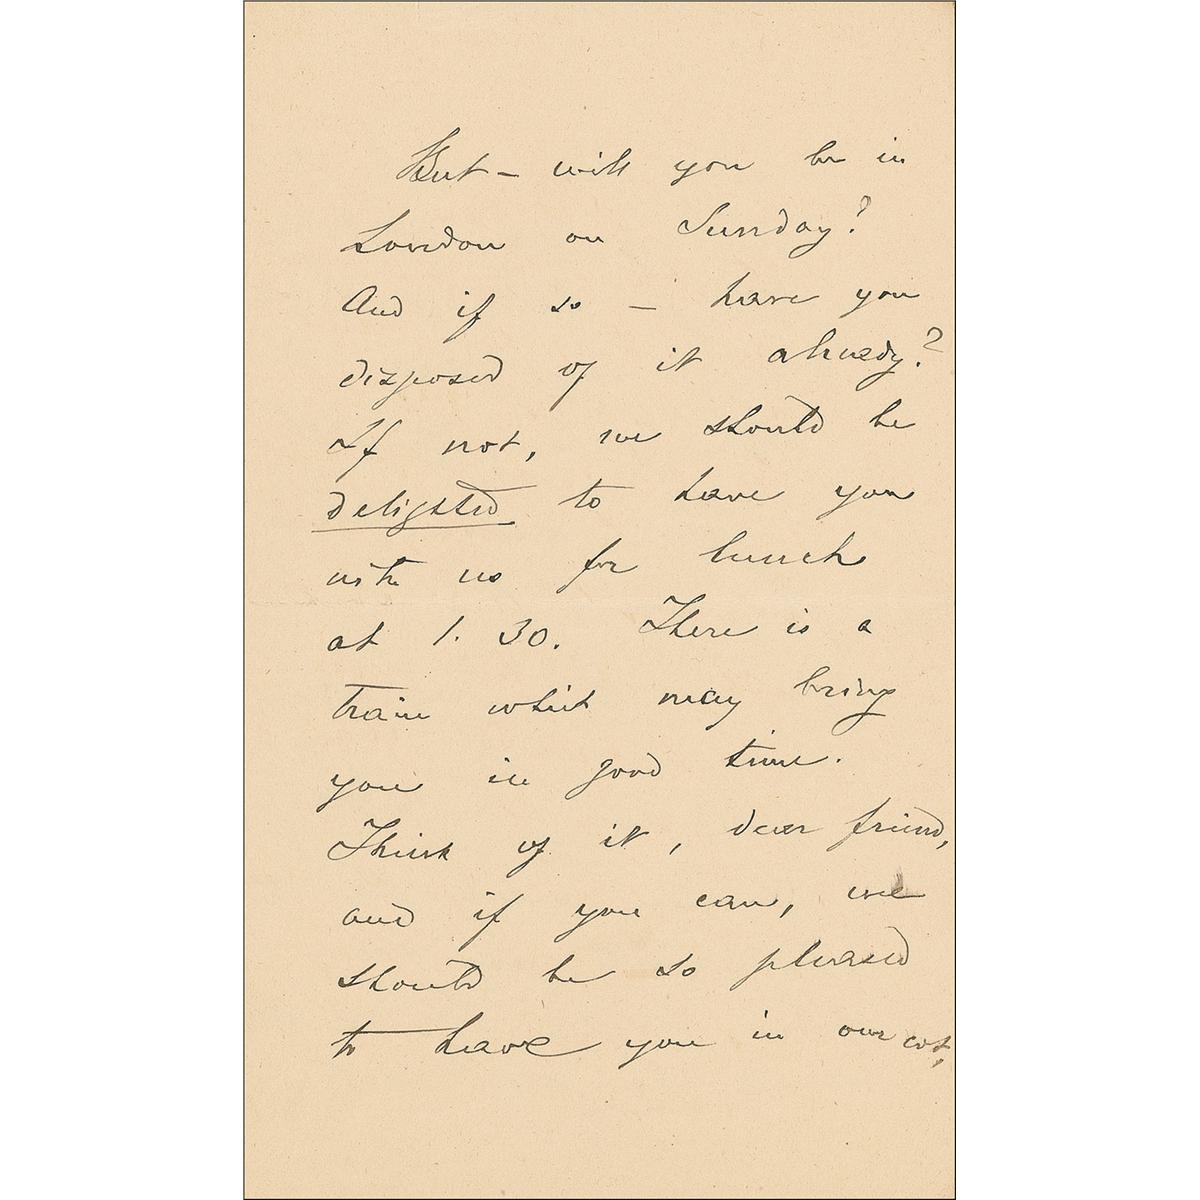 But – will you be in
London on Sunday?
And if so – have you
disposed of it already?
If not, we should be
delighted to have you
with us for lunch
at 1.30. There is a
train which may bring
you in good time.
Think of it, dear friend,
and if you can, we
should be so pleased
to have you in our cot,